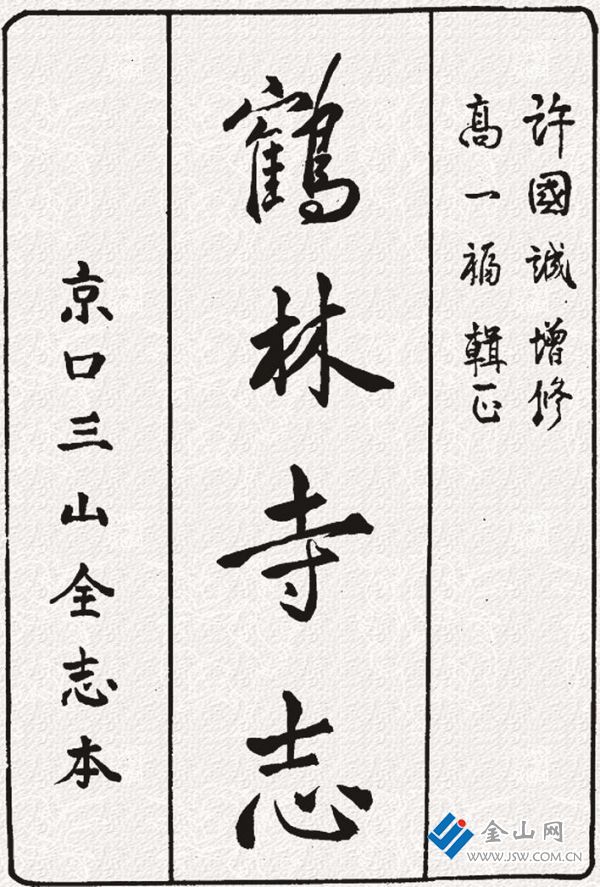 許國誠增修
高一福輯正
鶴林寺志
京口三山全志本
金山网
WWW.JSW.COM.CN